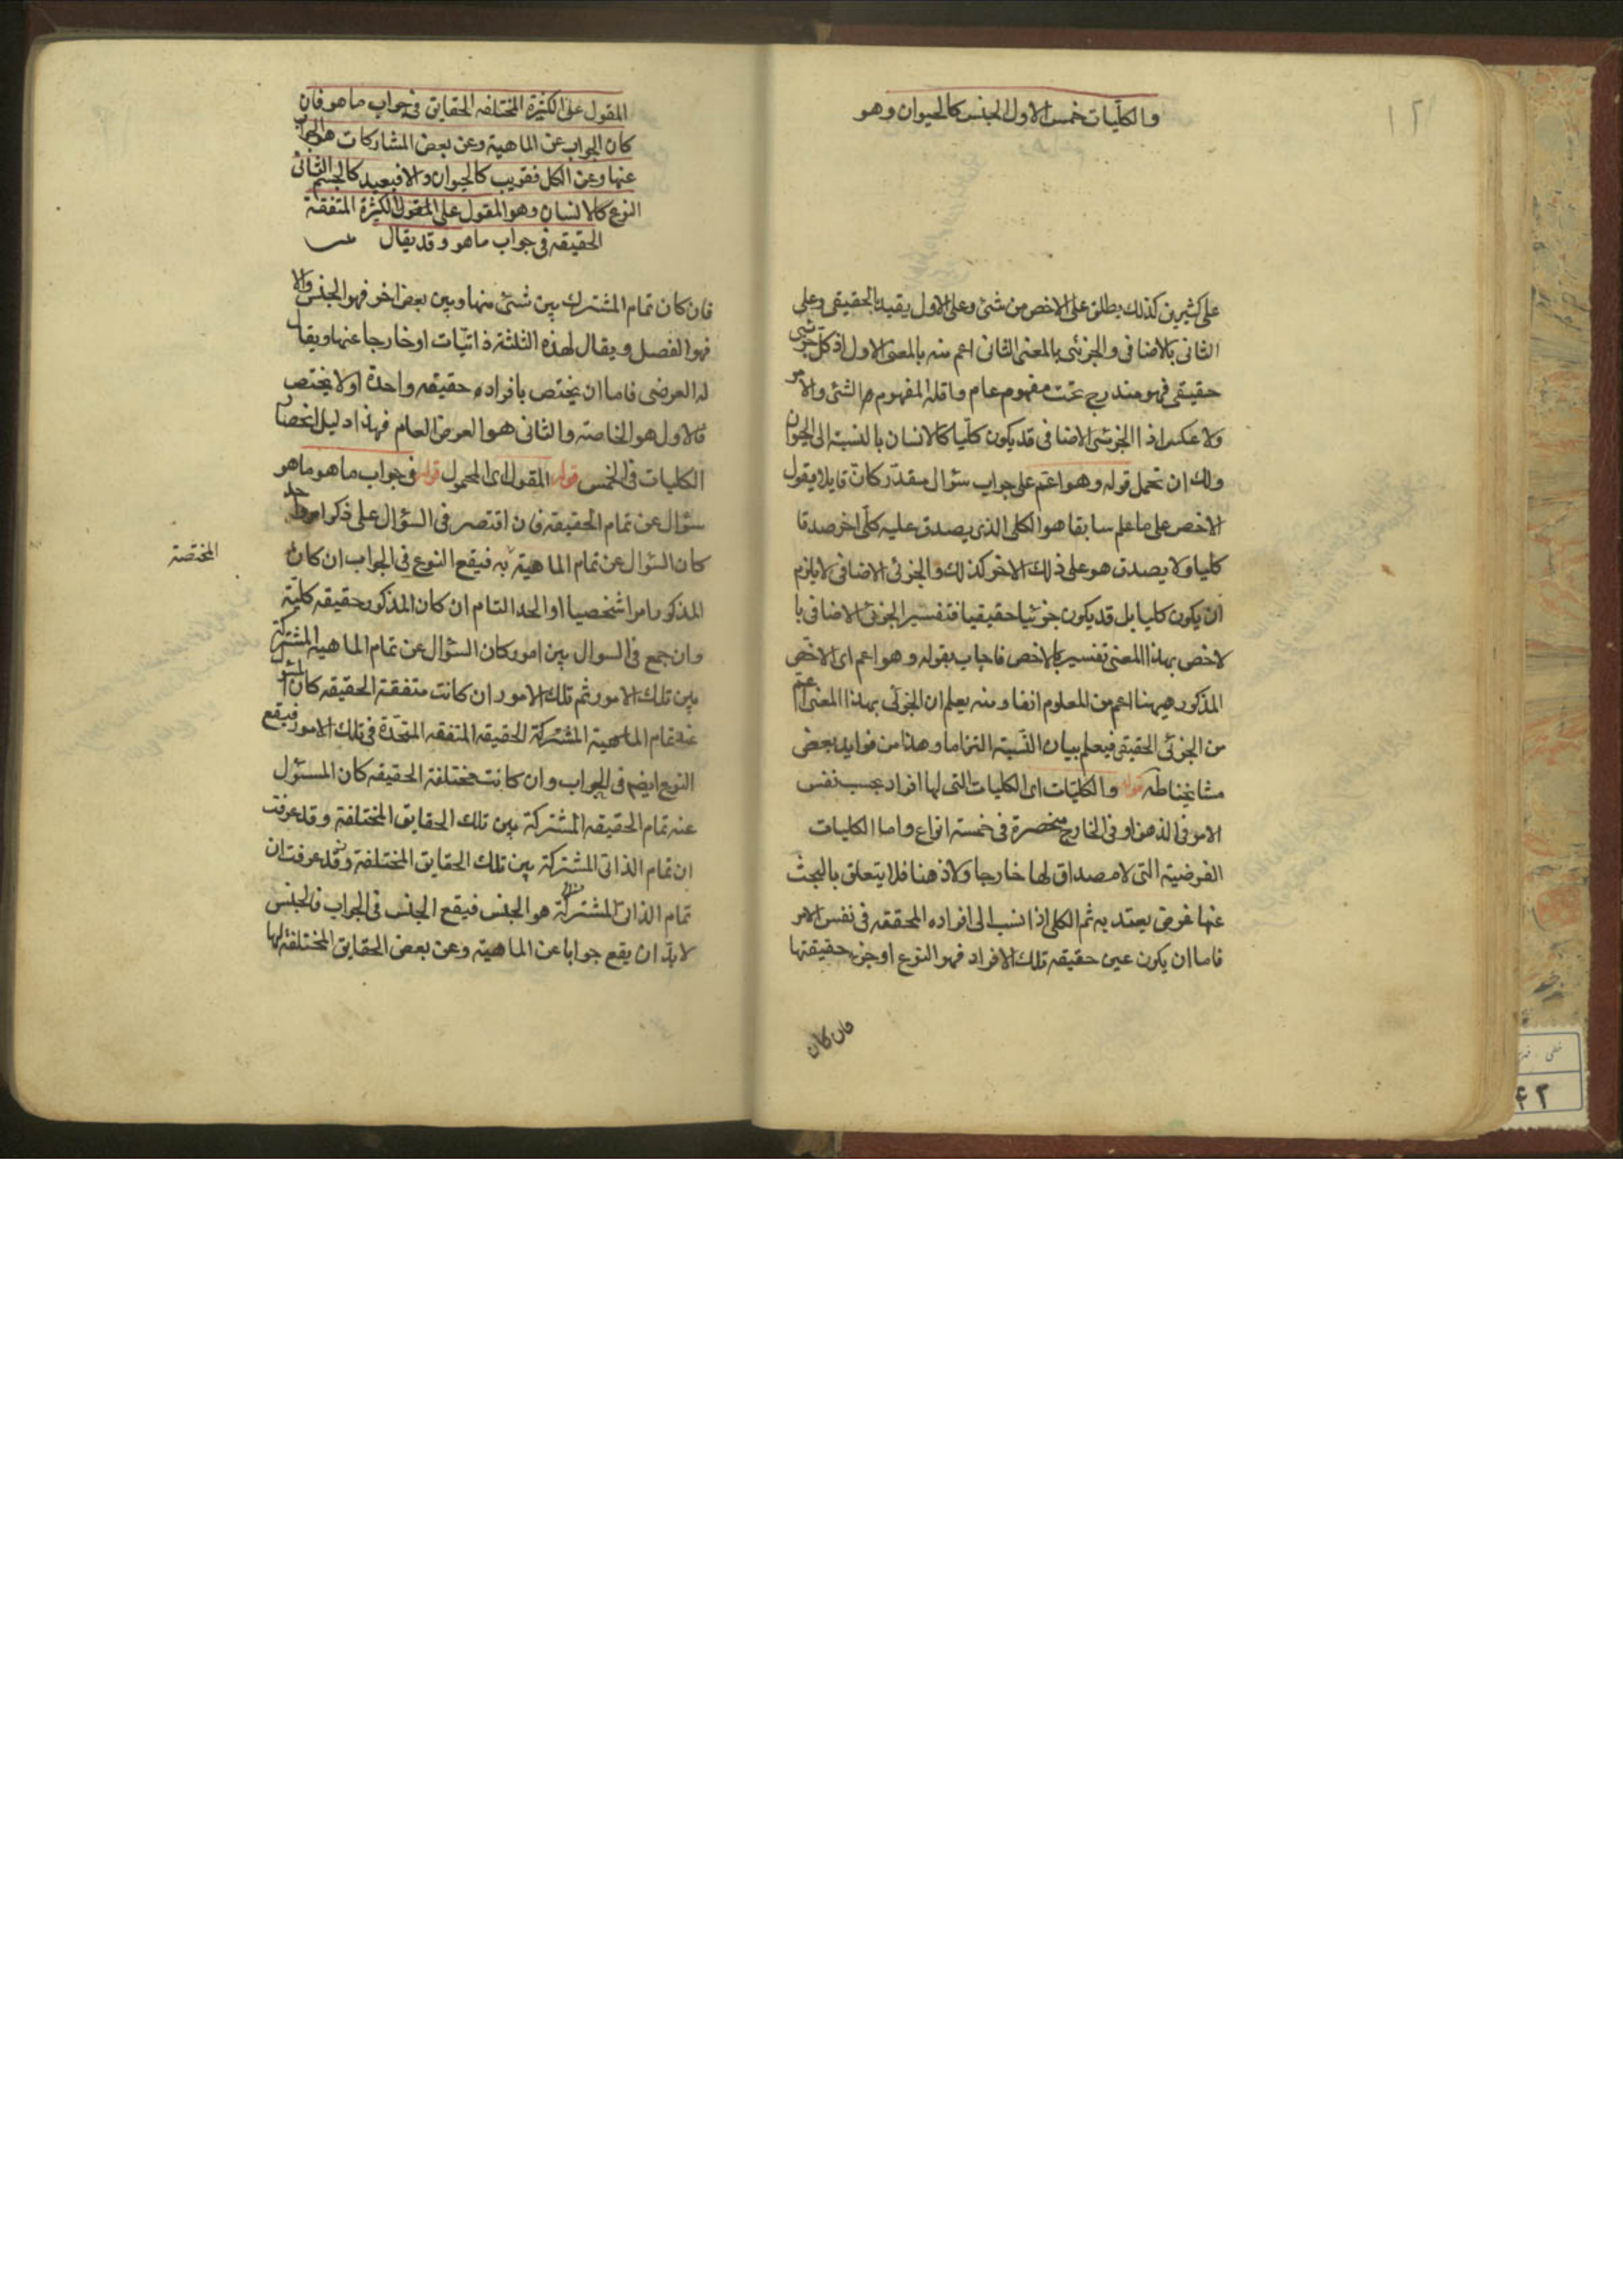 ١٢
والكلّيات خمس الاول الجنس كالحيوان وهو
على كثيرين كذلك يطلق على الاخص من شئ وعلى الاول يقيد بالحقيقى وعلى
الثانى بالاضافى والجزئى بالمعنى الثانى اعم منه بالمعنى الاول اذ كل جزئى
حقيقى فهو مندرج تحت مفهوم عام واقله المفهوم والشئ والامر
ولا عكس اذ الجزئى الاضافى قد يكون كلّيا كالانسان بالنسبة الى الحيوان
ولك ان تحمل قوله وهو اعم على جواب سؤال مقدّر كانّ قايلا يقول
الاخص على ما علم سابقا هو الكلى الذى يصدق عليه كلّى اخر صدقا
كليا ولا يصدق هو على ذلك الاخر كذلك والجزئى الاضافى لا يلزم
ان يكون كليا بل قد يكون جزئيا حقيقيا فتفسير الجزئى الاضافى با
لاخص بهذا المعنى تفسير بالاخص فاجاب بقوله وهو اعم اى الاخص
المذكور ههنا اعم من المعلوم انفا ومنه يعلم ان الجزئى بهذا المعنى اعم
من الجزئى الحقيقى فيعلم بيان النسبة التزاما وهذا من فوايد بعض
مشايخنا طه قوله والكليّات اى الكليات التى لها افراد بحسب نفس
الامر فى الذهن او فى الخارج منحصرة فى خمسة انواع واما الكليات
الفرضية التى لا مصداق لها خارجا ولا ذهنا فلا يتعلق بالبحث
عنها غرض يعتد به ثم الكلى اذا نسب الى افراده المحققه فى نفس الامر
فاما ان يكون عين حقيقه تلك الافراد فهو النوع او جزء حقيقتها
فان كان
المقول على الكثيرة المختلفه الحقايق فى جواب ما هو فان
كان الجواب عن الماهية وعن بعض المشاركات هو الجواب
عنها وعن الكل فقريب كالحيوان والا فبعيد كالجسم الثانى
النوع كالانسان وهو المقول على المقول الكثرة المتفقة
الحقيقه فى جواب ما هو وقد يقال
فان كان تمام المشترك بين شئ منها وبين بعض اخر فهو الجنس والا
فهو الفصل ويقال لهذه الثلثة ذاتيّات او خارجا عنها ويقال
له العرضى فاما ان يختص بافراده حقيقه واحدة او لا يختص
فالاول هو الخاصة والثانى هو العرض العام فهذا دليل انحصار
الكليات فى الخمس قوله المقول اى المحمول قوله فى جواب ما هو ما هو
سؤال عن تمام الحقيقه فان اقتصر فى السؤال على ذكر امر واحد
كان السّؤال عن تمام الماهية به فيقع النوع فى الجواب ان كان
المختصة
المذكور امرا شخصيا او الحد التام ان كان المذكور حقيقه كليّة
وان جمع فى السوال بين امور كان السّؤال عن تمام الماهية المشتركة
بين تلك الامور ثم تلك الامور ان كانت متفقة الحقيقه كان المسئول
عنه تمام الماهية المشتركة الحقيقه المتفقه المتحّدة فى تلك الامور فيقع
النوع ايضم فى الجواب وان كانت مختلفة الحقيقه كان المسئول
عنه تمام الحقيقه المشتركة بين تلك الحقايق المختلفة وقد عرفت
ان تمام الذاتى المشتركة بين تلك الحقايق المختلفة وقد عرفت ان
تمام الذاتى المشترك هو الجنس فيقع الجنس فى الجواب فالجنس
لا بدّ ان يقع جوابا عن الماهية وعن بعض الحقايق المختلفة لها